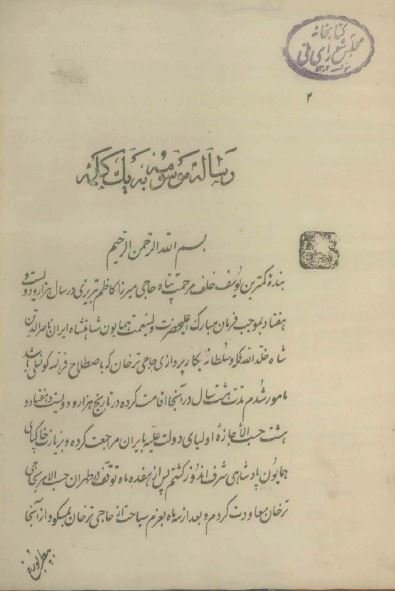 کتابخانه
مجلس شورای ملی
۲
رسالهٔ موسومه به یک کلمه
بسم الله الرحمن الرحیم
بندهٔ کمترین یوسف خلف مرحمت پناه حاجی میرزا کاظم تبریزی در سال هزار و دویست و
هفتاد بموجب فرمان مبارک اعلیحضرت ولینعمت همایون شاهنشاه ایران ناصرالدین
شاه خلّد الله ملکه و سلطانه بکارپردازی حاجی ترخان که باصطلاح فرانسه کونسلی باشد
مأمور شدم مدّت هشت سال در آنجا اقامت کرده در تاریخ هزار و دویست و هفتاد و
هشت حسب الاجازهٔ اولیای دولت علیّه بایران مراجعت کرده و بزیارت خاکپای
همایون پادشاهی شرف اندوز گشتم پس از هفده ماه توقف در طهران حسب الامر بحاجی
ترخان معاودت کردم و بعد از سه ماه بعزم سیاحت از حاجی ترخان بمسکو و از آنجا